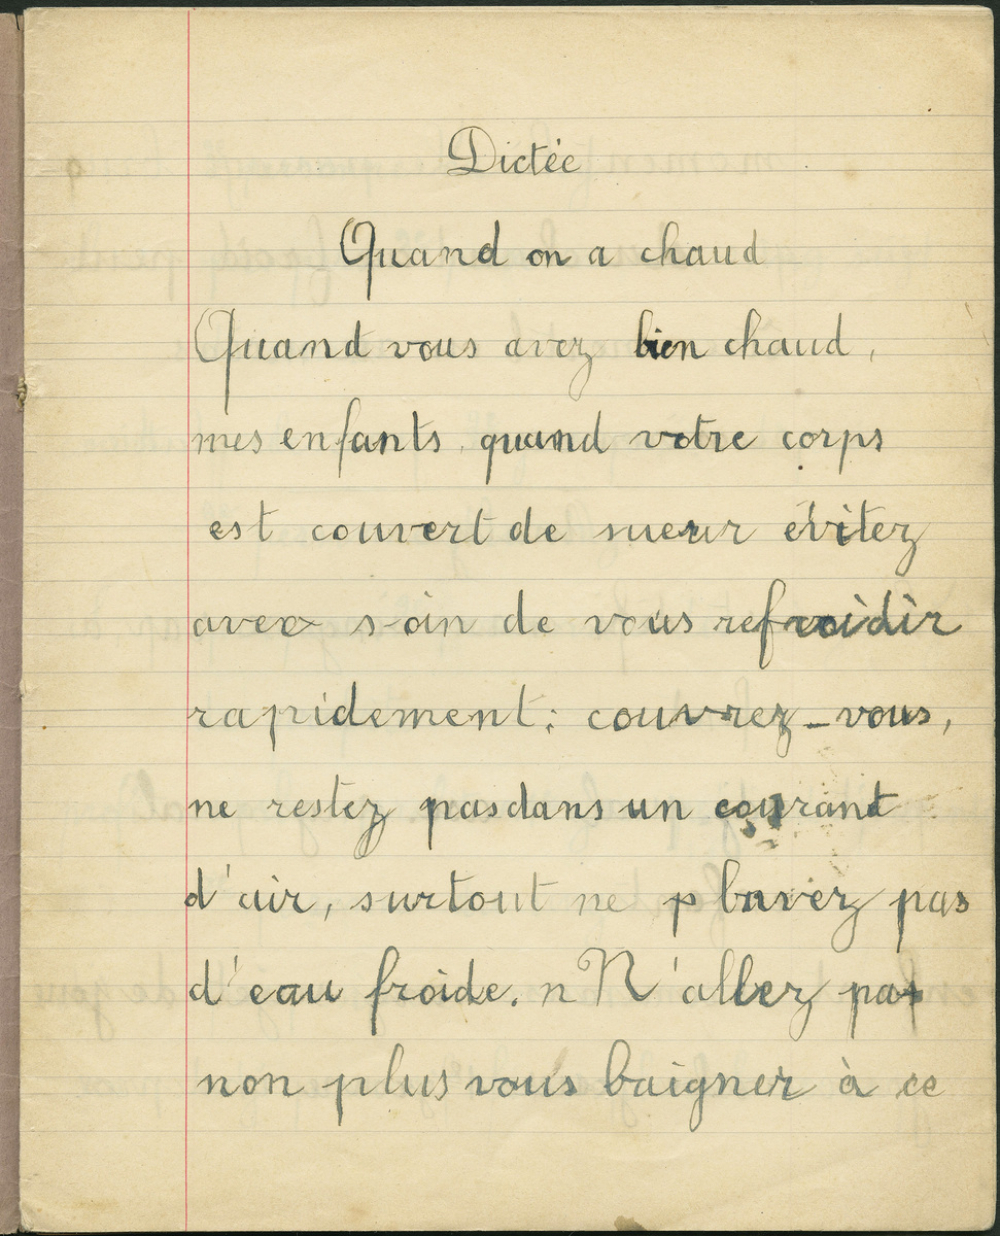 Dictée
Quand on a chaud
Quand vous avez bien chaud,
mes enfants, quand votre corps
est couvert de sueur évitez
avec soin de vous refroidir
rapidement; couvrez-vous,
ne restez pas dans un courant
d'air, surtout ne p buvez pas
d'eau froide. n N'allez pas
non plus vous baigner à ce